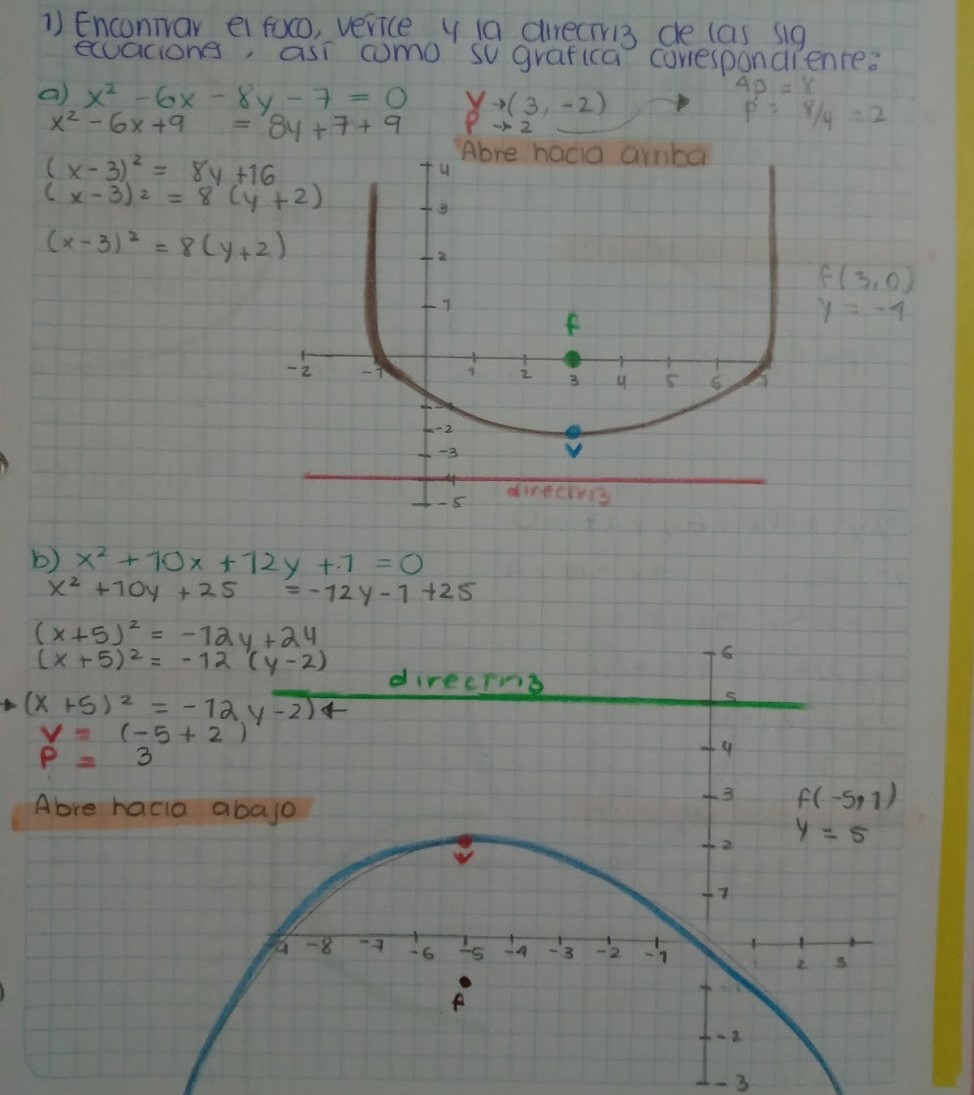 1) Encontrar el foco, vérice y la directriz de las sig
ecuaciones, así como su grafica correspondiente:
a) x² - 6x - 8y - 7 = 0
x² - 6x + 9 = 8y + 7 + 9
V → (3, -2)
P → 2
4p = 8
p = 8/4 = 2
Abre hacia arriba
(x - 3)² = 8y + 16
(x - 3)2 = 8 (y + 2)
(x - 3)² = 8(y + 2)
f(3,0)
y = -4
4
3
2
1
f
-2 -1 1 2 3 4 5 6 7
-2
V
-3
-4
directriz
-5
b) x² + 10x + 12y + 1 = 0
x² + 10y + 25 = -12y - 1 + 25
(x + 5)² = -12y + 24
(x + 5)² = -12 (y - 2)
→ (x + 5)² = -12 y - 2) ←
V = (-5 + 2)
P = 3
Abre hacia abajo
directriz
6
5
4
3
2
1
f(-5,1)
y = 5
V
-9 -8 -7 -6 -5 -4 -3 -2 -1 2 3
f
-2
-3